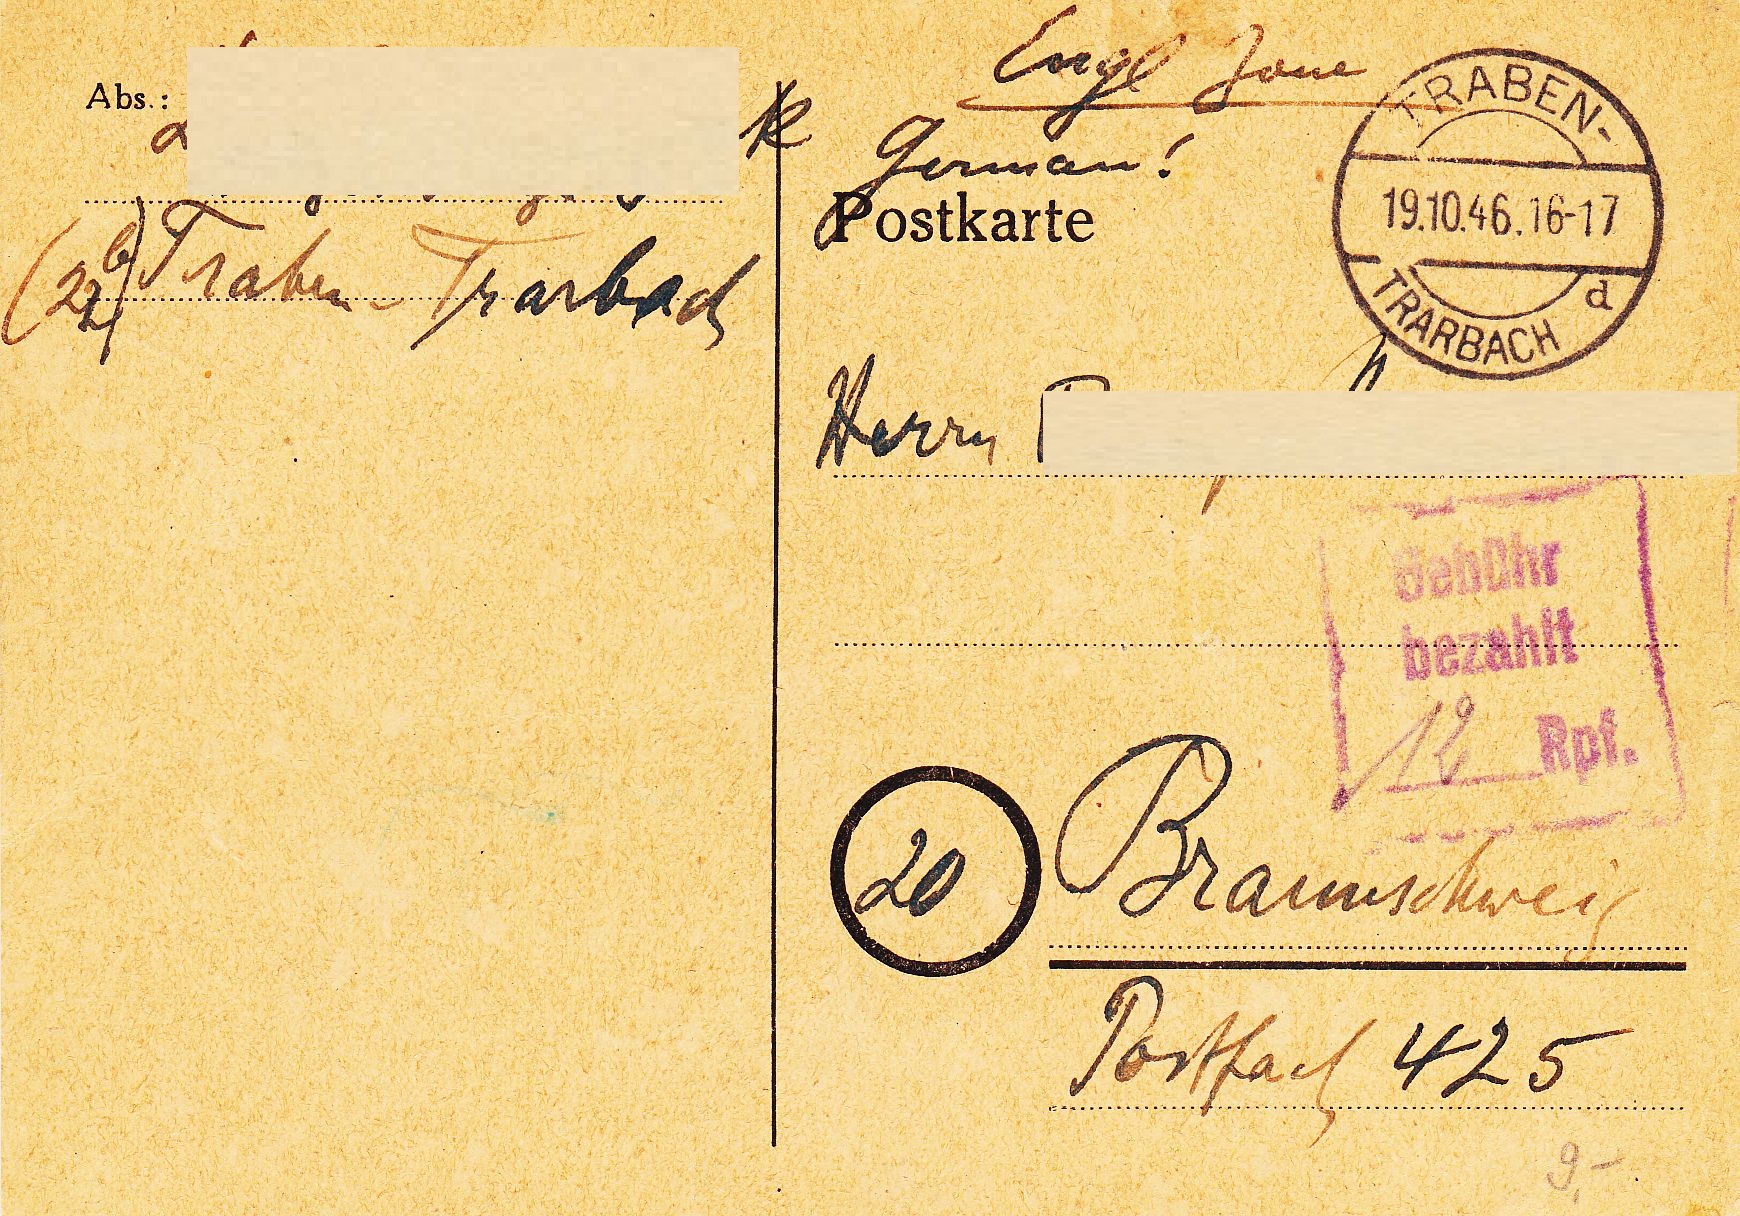 Abs.:
(22b) Traben-Trarbach
Engl Zone
German!
Postkarte
TRABEN-
19.10.46.16-17
TRARBACH d
Herrn
Gebühr
bezahlt
12 Rpf.
20 Braunschweig
Postfach 425
9,-